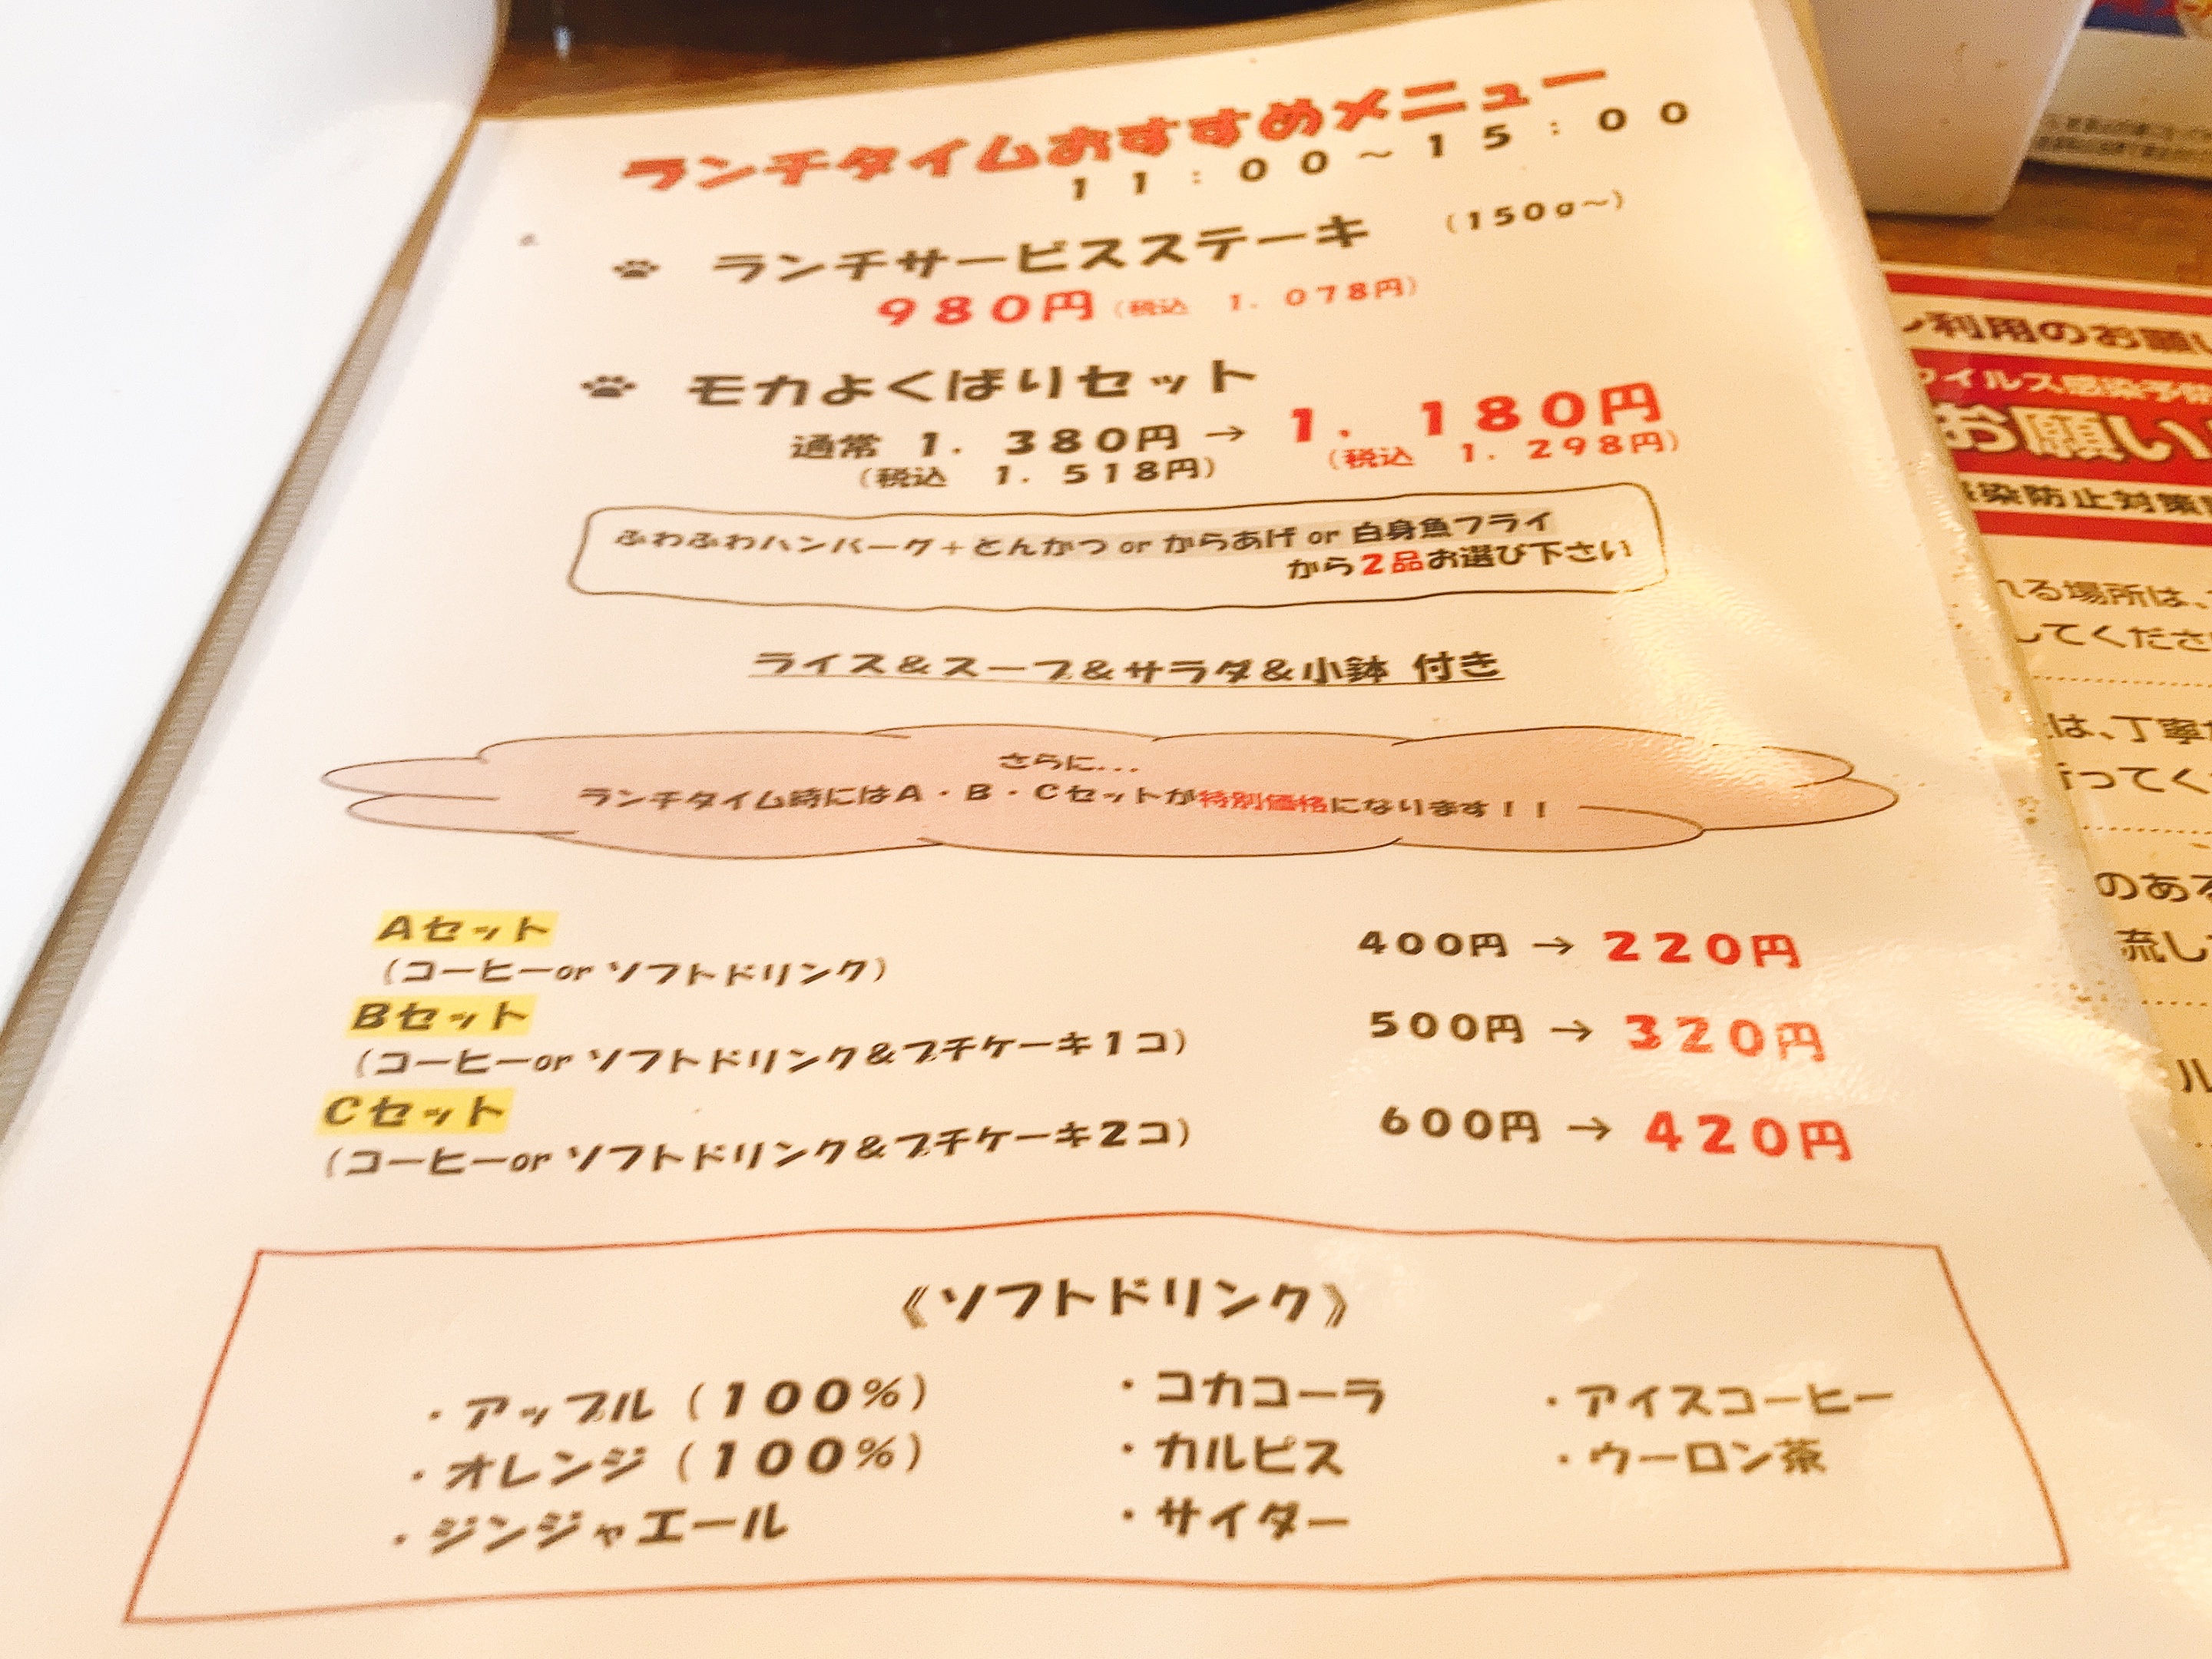 ランチタイムおすすめメニュー
11:00～15:00
ランチサービスステーキ (150g～)
980円(税込 1.078円)
モカよくばりセット
通常 1.380円→ 1.180円
(税込 1.518円) (税込 1.298円)
ふわふわハンバーグ+とんかつ or からあげ or 白身魚フライ
から2品お選び下さい
ライス&スープ&サラダ&小鉢 付き
さらに...
ランチタイム時にはA・B・Cセットが特別価格になります!!
Aセット 400円→220円
(コーヒーor ソフトドリンク)
Bセット 500円→320円
(コーヒーor ソフトドリンク&プチケーキ1コ)
Cセット 600円→420円
(コーヒーor ソフトドリンク&プチケーキ2コ)
《ソフトドリンク》
・アップル(100%) ・コカコーラ ・アイスコーヒー
・オレンジ(100%) ・カルピス ・ウーロン茶
・ジンジャエール ・サイダー
利用のお願い
イルス感染予防
お願い
染防止対策
れる場所は、
してくださ
は、丁寧
ってく
のある
流し
ル